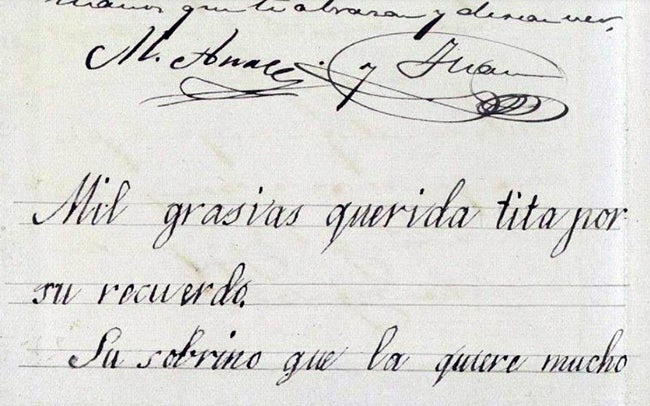 manos que te abrasan y desean ver,
M. Anaᵉˡ y Juan
Mil grasias querida tita por
su recuerdo.
Su sobrino que la quiere mucho